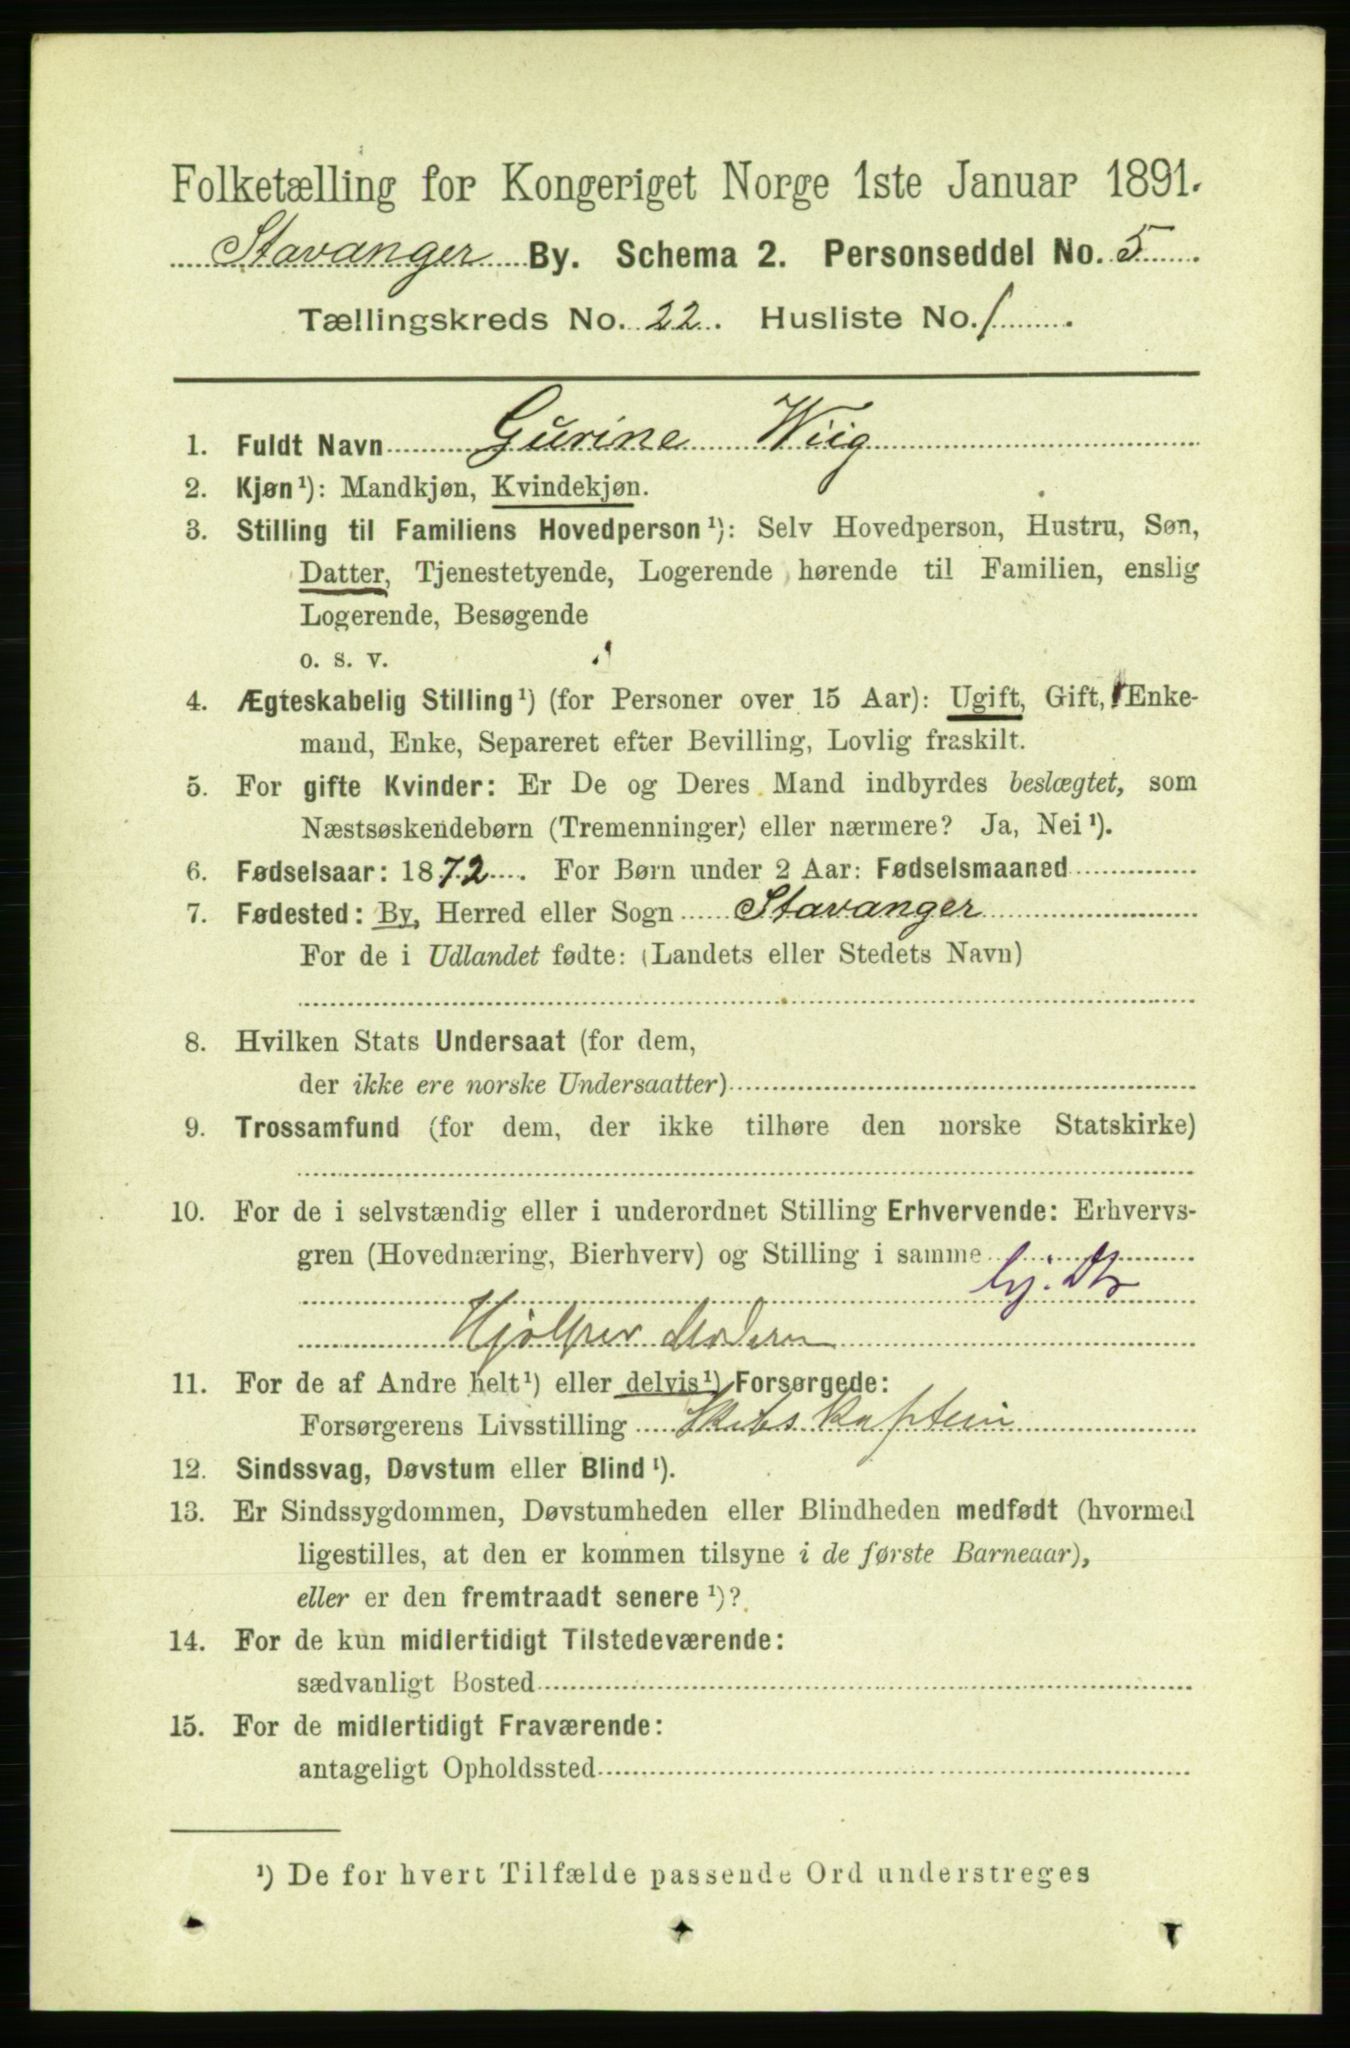 Folketælling for Kongeriget Norge 1ste Januar 1891.
Stavanger By. Schema 2. Personseddel No. 5
Tællingskreds No. 22. Husliste No. 1
1. Fuldt Navn Gurine Wiig
2. Kjøn¹): Mandkjøn, Kvindekjøn.
3. Stilling til Familiens Hovedperson¹): Selv Hovedperson, Hustru, Søn,
Datter, Tjenestetyende, Logerende hørende til Familien, enslig
Logerende, Besøgende
o. s. v.
4. Ægteskabelig Stilling¹) (for Personer over 15 Aar): Ugift, Gift, Enke-
mand, Enke, Separeret efter Bevilling, Lovlig fraskilt.
5. For gifte Kvinder: Er De og Deres Mand indbyrdes beslægtet, som
Næstsøskendebørn (Tremenninger) eller nærmere? Ja, Nei¹).
6. Fødselsaar: 1872. For Børn under 2 Aar: Fødselsmaaned
7. Fødested: By, Herred eller Sogn Stavanger
For de i Udlandet fødte: (Landets eller Stedets Navn)
8. Hvilken Stats Undersaat (for dem,
der ikke ere norske Undersaatter)
9. Trossamfund (for dem, der ikke tilhøre den norske Statskirke)
10. For de i selvstændig eller i underordnet Stilling Erhvervende: Erhvervs-
gren (Hovednæring, Bierhverv) og Stilling i samme
Hjælper Moderen
11. For de af Andre helt¹) eller delvis¹) Forsørgede:
Forsørgerens Livsstilling Skibskaptein
12. Sindssvag, Døvstum eller Blind¹).
13. Er Sindssygdommen, Døvstumheden eller Blindheden medfødt (hvormed
ligestilles, at den er kommen tilsyne i de første Barneaar),
eller er den fremtraadt senere¹)?
14. For de kun midlertidigt Tilstedeværende:
sædvanligt Bosted
15. For de midlertidigt Fraværende:
antageligt Opholdssted
¹) De for hvert Tilfælde passende Ord understreges